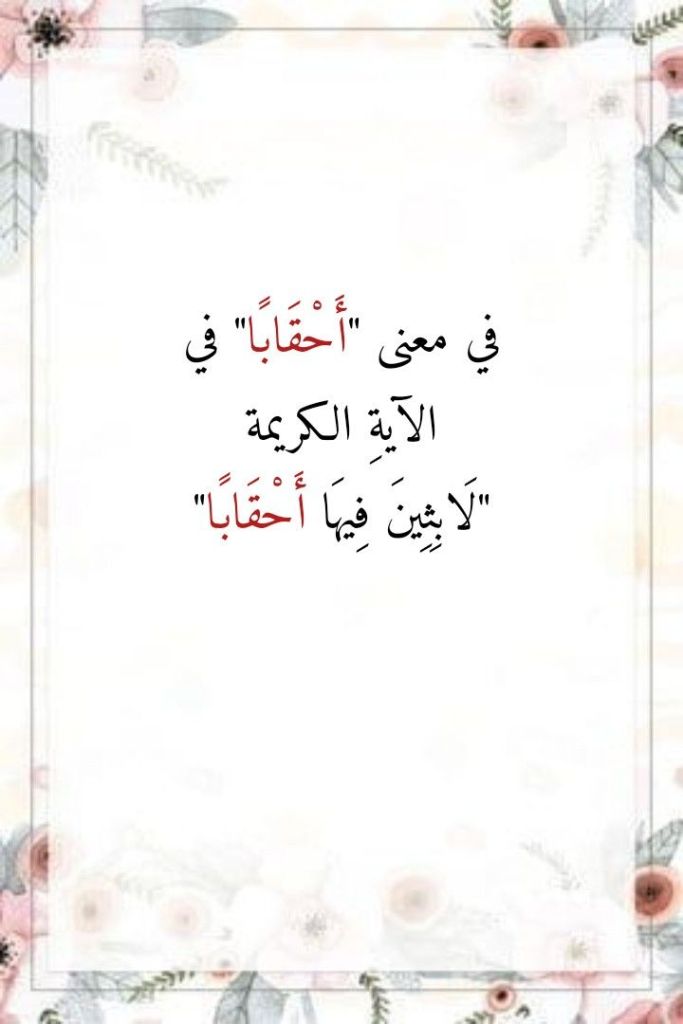 في معنى "أَحْقَابًا" في
الآيةِ الكريمة
"لَابِثِينَ فِيهَا أَحْقَابًا"